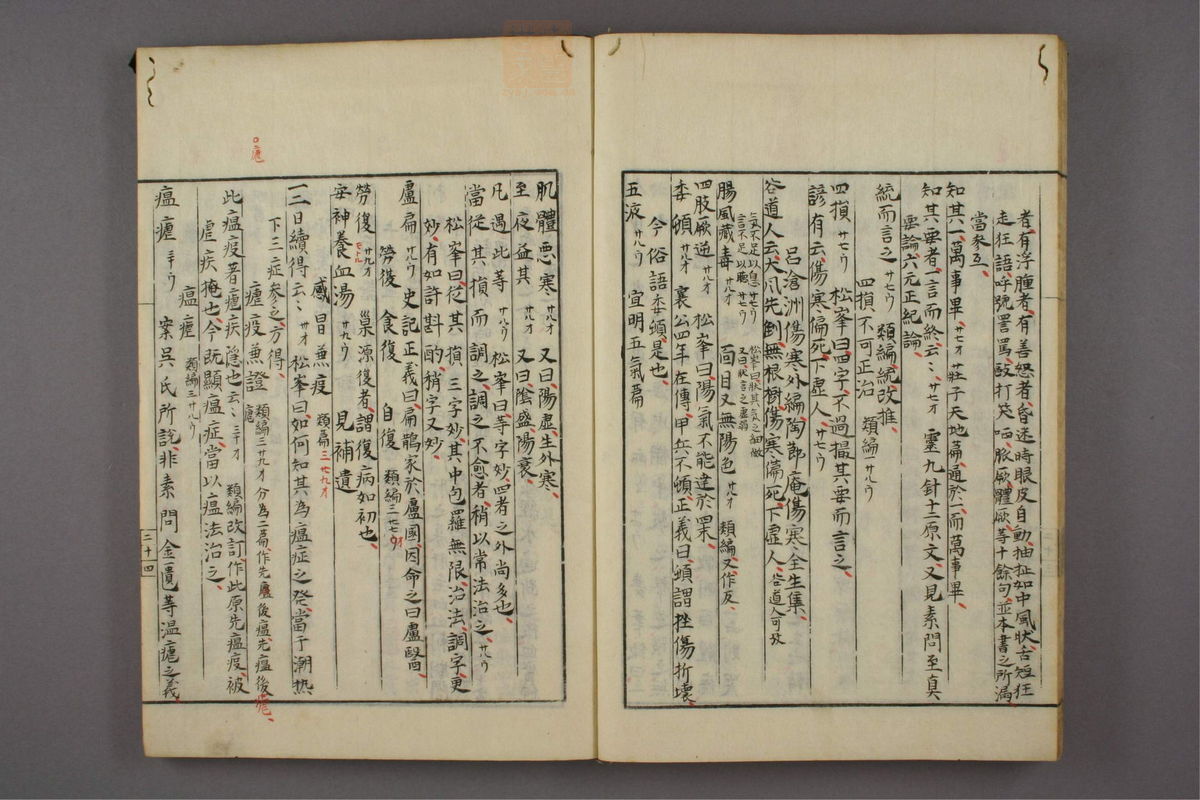 者、有浮腫者、有善怒者、昏迷時眼皮自動、抽扯如中風狀、舌短狂
走狂語、呼號詈罵、毆打哭啼、脈厥體厥、等十餘句、並本書之所漏
當參互、
知其一、萬事畢、廿七オ 莊子天地篇、通於一而萬事畢
知其要者、一言而終云〻、廿七オ 靈九針十二原文、又見素問至真
要論六元正紀論、
統而言之 廿七ウ 類編統改推、
四損不可正治 類編一廿八ウ
四損 廿七ウ 松峯曰四字、不過撮其要而言之、
諺有云、傷寒偏死下虛人、廿七ウ
呂滄洲傷寒外編、陶節庵傷寒全生集、
谷道人云、大爪先倒無根樹、傷寒偏死下虛人、谷道人可攷
氣不足以息 廿七ウ 松峯曰狀其氣之細微
言不足以聽 廿七ウ 又曰狀言之虛弱
腸風藏毒 廿八オ 面目又無陽色 廿八オ 類編又作反、
四肢厥逆 廿八オ 松峯曰陽氣不能達於四末、
委頓 廿八オ 襄公四年左傳、甲兵不頓、正義曰、頓謂挫傷折壞、
今俗語委頓是也、
五液 廿八ウ 宜明五氣篇
肌體惡寒 廿八オ 又曰陽虛生外寒、
至夜益其 廿八オ 又曰陰盛陽衰
凡遇此等 廿八ウ 松峯曰等字妙、四者之外尚多也、
當從其損而調之、調之不愈者、稍以常法治之、廿八ウ
松峯曰、從其損三字妙、其中包羅無限、治法調字、更
妙、有如許斟酌、稍字又妙、
盧扁 廿八ウ 史記正義曰扁鵲家於盧國、因命之曰盧醫、
勞復 食復 自復 類編三廿七オ
勞復 廿九オ 巢源復者、謂復病如初也、
安神養血湯 廿九ウ 見補遺
感冒兼疫 類編三廿九オ
一二日續得云〻 廿オ 松峯曰、如何知其為瘟症之發、當于潮熱
下三症參之、方得、
瘧疫兼證 類編三廿九オ 分為二篇、作先瘧後瘟、先瘟後瘧、
此瘟疫著瘧疾隱也云〻 三十オ 類編改訂作此原先瘟疫、被
瘧疾掩也、今既顯瘟症、當以瘟法治之、
瘟瘧 類編三廿八ウ
瘟瘧 三十ウ 案吳氏所說、非素問金匱等溫瘧之義、
二十四